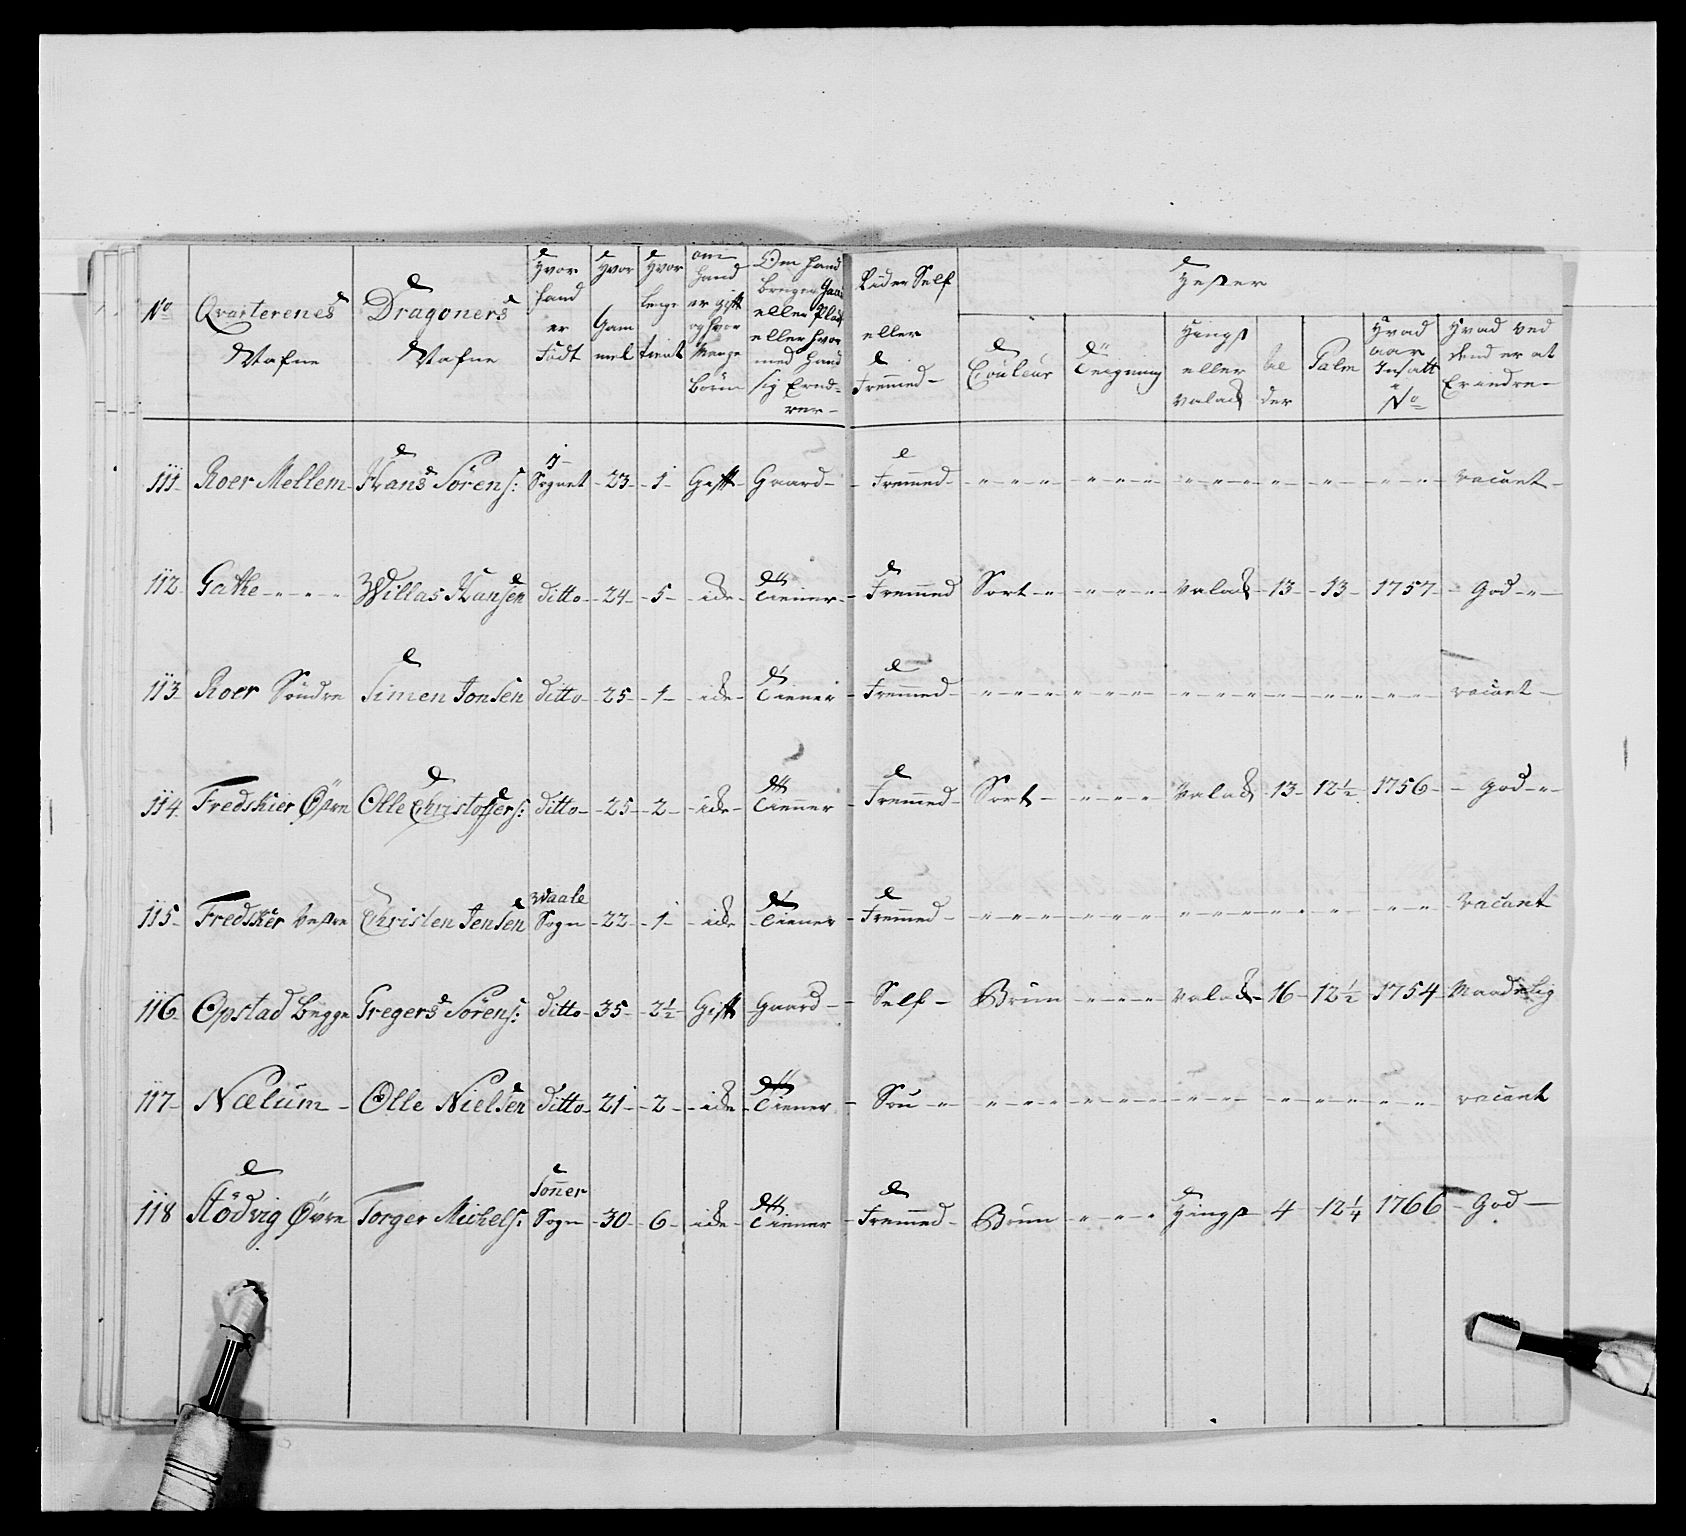 No Qvarterenes Nafne Dragoners Nafne Hvor hand er Födt Hvor Gammel Hvor lenge tient om hand er gift og hvor Mange börn Om hand bruger Gaard eller Plads eller hvor med hand sig Ernærer Rider Self eller Fremmed Hester
Couleur Teigning Hingst eller valack Palm Hvad aar Insatt No Hvad ved dend er at Erindre
111 Roer Mellem Hans Sörens: i Sognet 23 1 Gift Gaard Fremmed vacant
112 Gatte Willas Hansen ditto 24 5 ide Tiener Fremmed Sort valack 13 13 1757 God
113 Roer Söndre Simen Jonsen ditto 25 1 ide Tiener Fremmed vacant
114 Fredskier Östre Olle Christoffers: ditto 25 2 ide Tienner Fremmed Sort Valack 13 12½ 1756 God
115 Fredskier Vestre Christen Jensen Waale Sogn 22 1 ide Tiener Fremmed vacant
116 Opstad begge Gregers Sörens: ditto 35 2½ Gift Gaard Self Brun valack 16 12½ 1754 Maadelig
117 Nælum Olle Nielsen ditto 21 2 ide Tiener vacant
118 Stödvig Övre Torger Michels: Sogn 30 6 ide Tiener Fremmed Brun Hingst 4 12¼ 1766 God